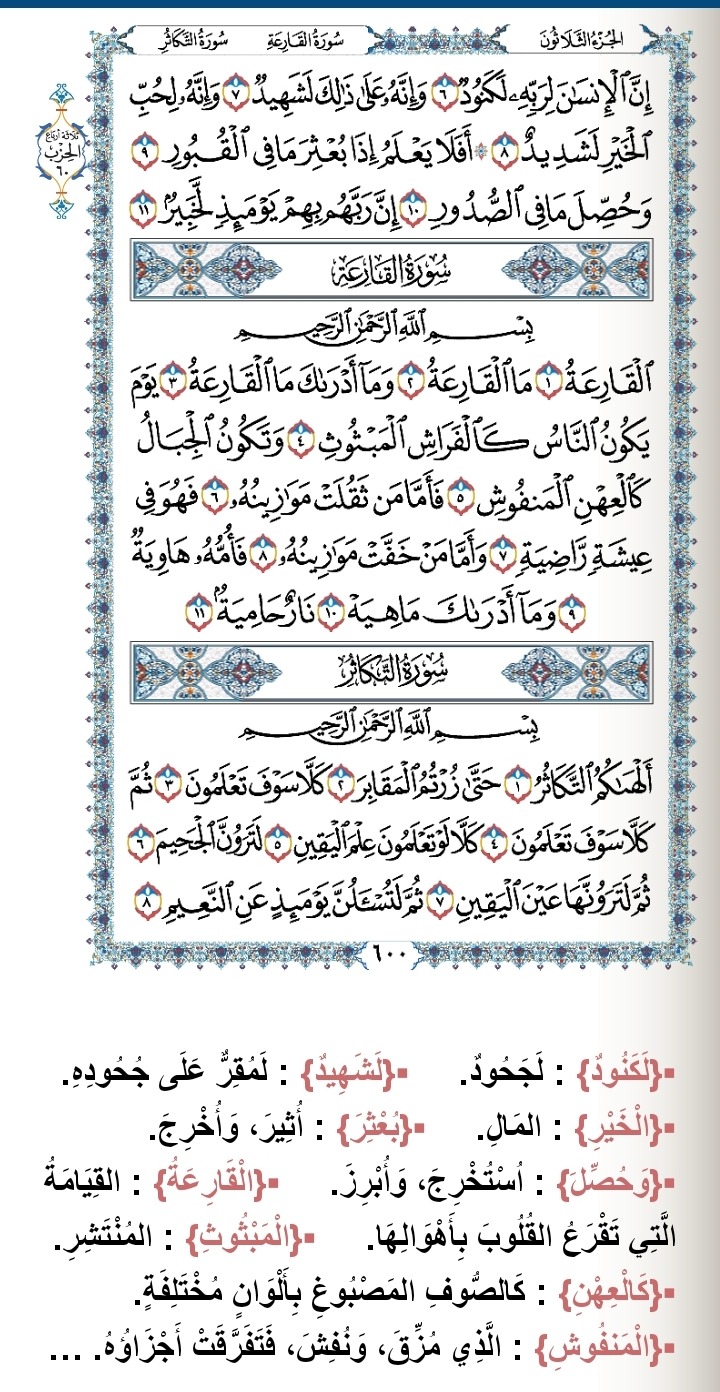 الجزء الثلاثون سورة القارعة سورة التكاثر
إِنَّ ٱلْإِنسَٰنَ لِرَبِّهِۦ لَكَنُودٌ ٦ وَإِنَّهُۥ عَلَىٰ ذَٰلِكَ لَشَهِيدٌ ٧ وَإِنَّهُۥ لِحُبِّ
ثلاثة أرباع
الحزب
٦٠
ٱلْخَيْرِ لَشَدِيدٌ ٨ ۞ أَفَلَا يَعْلَمُ إِذَا بُعْثِرَ مَا فِى ٱلْقُبُورِ ٩
وَحُصِّلَ مَا فِى ٱلصُّدُورِ ١٠ إِنَّ رَبَّهُم بِهِمْ يَوْمَئِذٍ لَّخَبِيرٌۢ ١١
سورة القارعة
بِسْمِ ٱللَّهِ ٱلرَّحْمَٰنِ ٱلرَّحِيمِ
ٱلْقَارِعَةُ ١ مَا ٱلْقَارِعَةُ ٢ وَمَآ أَدْرَىٰكَ مَا ٱلْقَارِعَةُ ٣ يَوْمَ
يَكُونُ ٱلنَّاسُ كَٱلْفَرَاشِ ٱلْمَبْثُوثِ ٤ وَتَكُونُ ٱلْجِبَالُ
كَٱلْعِهْنِ ٱلْمَنفُوشِ ٥ فَأَمَّا مَن ثَقُلَتْ مَوَٰزِينُهُۥ ٦ فَهُوَ فِى
عِيشَةٍ رَّاضِيَةٍ ٧ وَأَمَّا مَنْ خَفَّتْ مَوَٰزِينُهُۥ ٨ فَأُمُّهُۥ هَاوِيَةٌ
٩ وَمَآ أَدْرَىٰكَ مَا هِيَهْ ١٠ نَارٌ حَامِيَةٌۢ ١١
سورة التكاثر
بِسْمِ ٱللَّهِ ٱلرَّحْمَٰنِ ٱلرَّحِيمِ
أَلْهَىٰكُمُ ٱلتَّكَاثُرُ ١ حَتَّىٰ زُرْتُمُ ٱلْمَقَابِرَ ٢ كَلَّا سَوْفَ تَعْلَمُونَ ٣ ثُمَّ
كَلَّا سَوْفَ تَعْلَمُونَ ٤ كَلَّا لَوْ تَعْلَمُونَ عِلْمَ ٱلْيَقِينِ ٥ لَتَرَوُنَّ ٱلْجَحِيمَ ٦
ثُمَّ لَتَرَوُنَّهَا عَيْنَ ٱلْيَقِينِ ٧ ثُمَّ لَتُسْـَٔلُنَّ يَوْمَئِذٍ عَنِ ٱلنَّعِيمِ ٨
٦٠٠
▪{لَكَنُودٌ} : لَجَحُودٌ. ▪{لَشَهِيدٌ} : لَمُقِرٌّ عَلَى جُحُودِهِ.
▪{الْخَيْرِ} : المَالِ. ▪{بُعْثِرَ} : أُثِيرَ، وَأُخْرِجَ.
▪{وَحُصِّلَ} : اسْتُخْرِجَ، وَأُبْرِزَ. ▪{الْقَارِعَةُ} : القِيَامَةُ
الَّتِي تَقْرَعُ القُلُوبَ بِأَهْوَالِهَا. ▪{الْمَبْثُوثِ} : المُنْتَشِرِ.
▪{كَالْعِهْنِ} : كَالصُّوفِ المَصْبُوغِ بِأَلْوَانٍ مُخْتَلِفَةٍ.
▪{الْمَنفُوشِ} : الَّذِي مُزِّقَ، وَنُفِشَ، فَتَفَرَّقَتْ أَجْزَاؤُهُ. ...